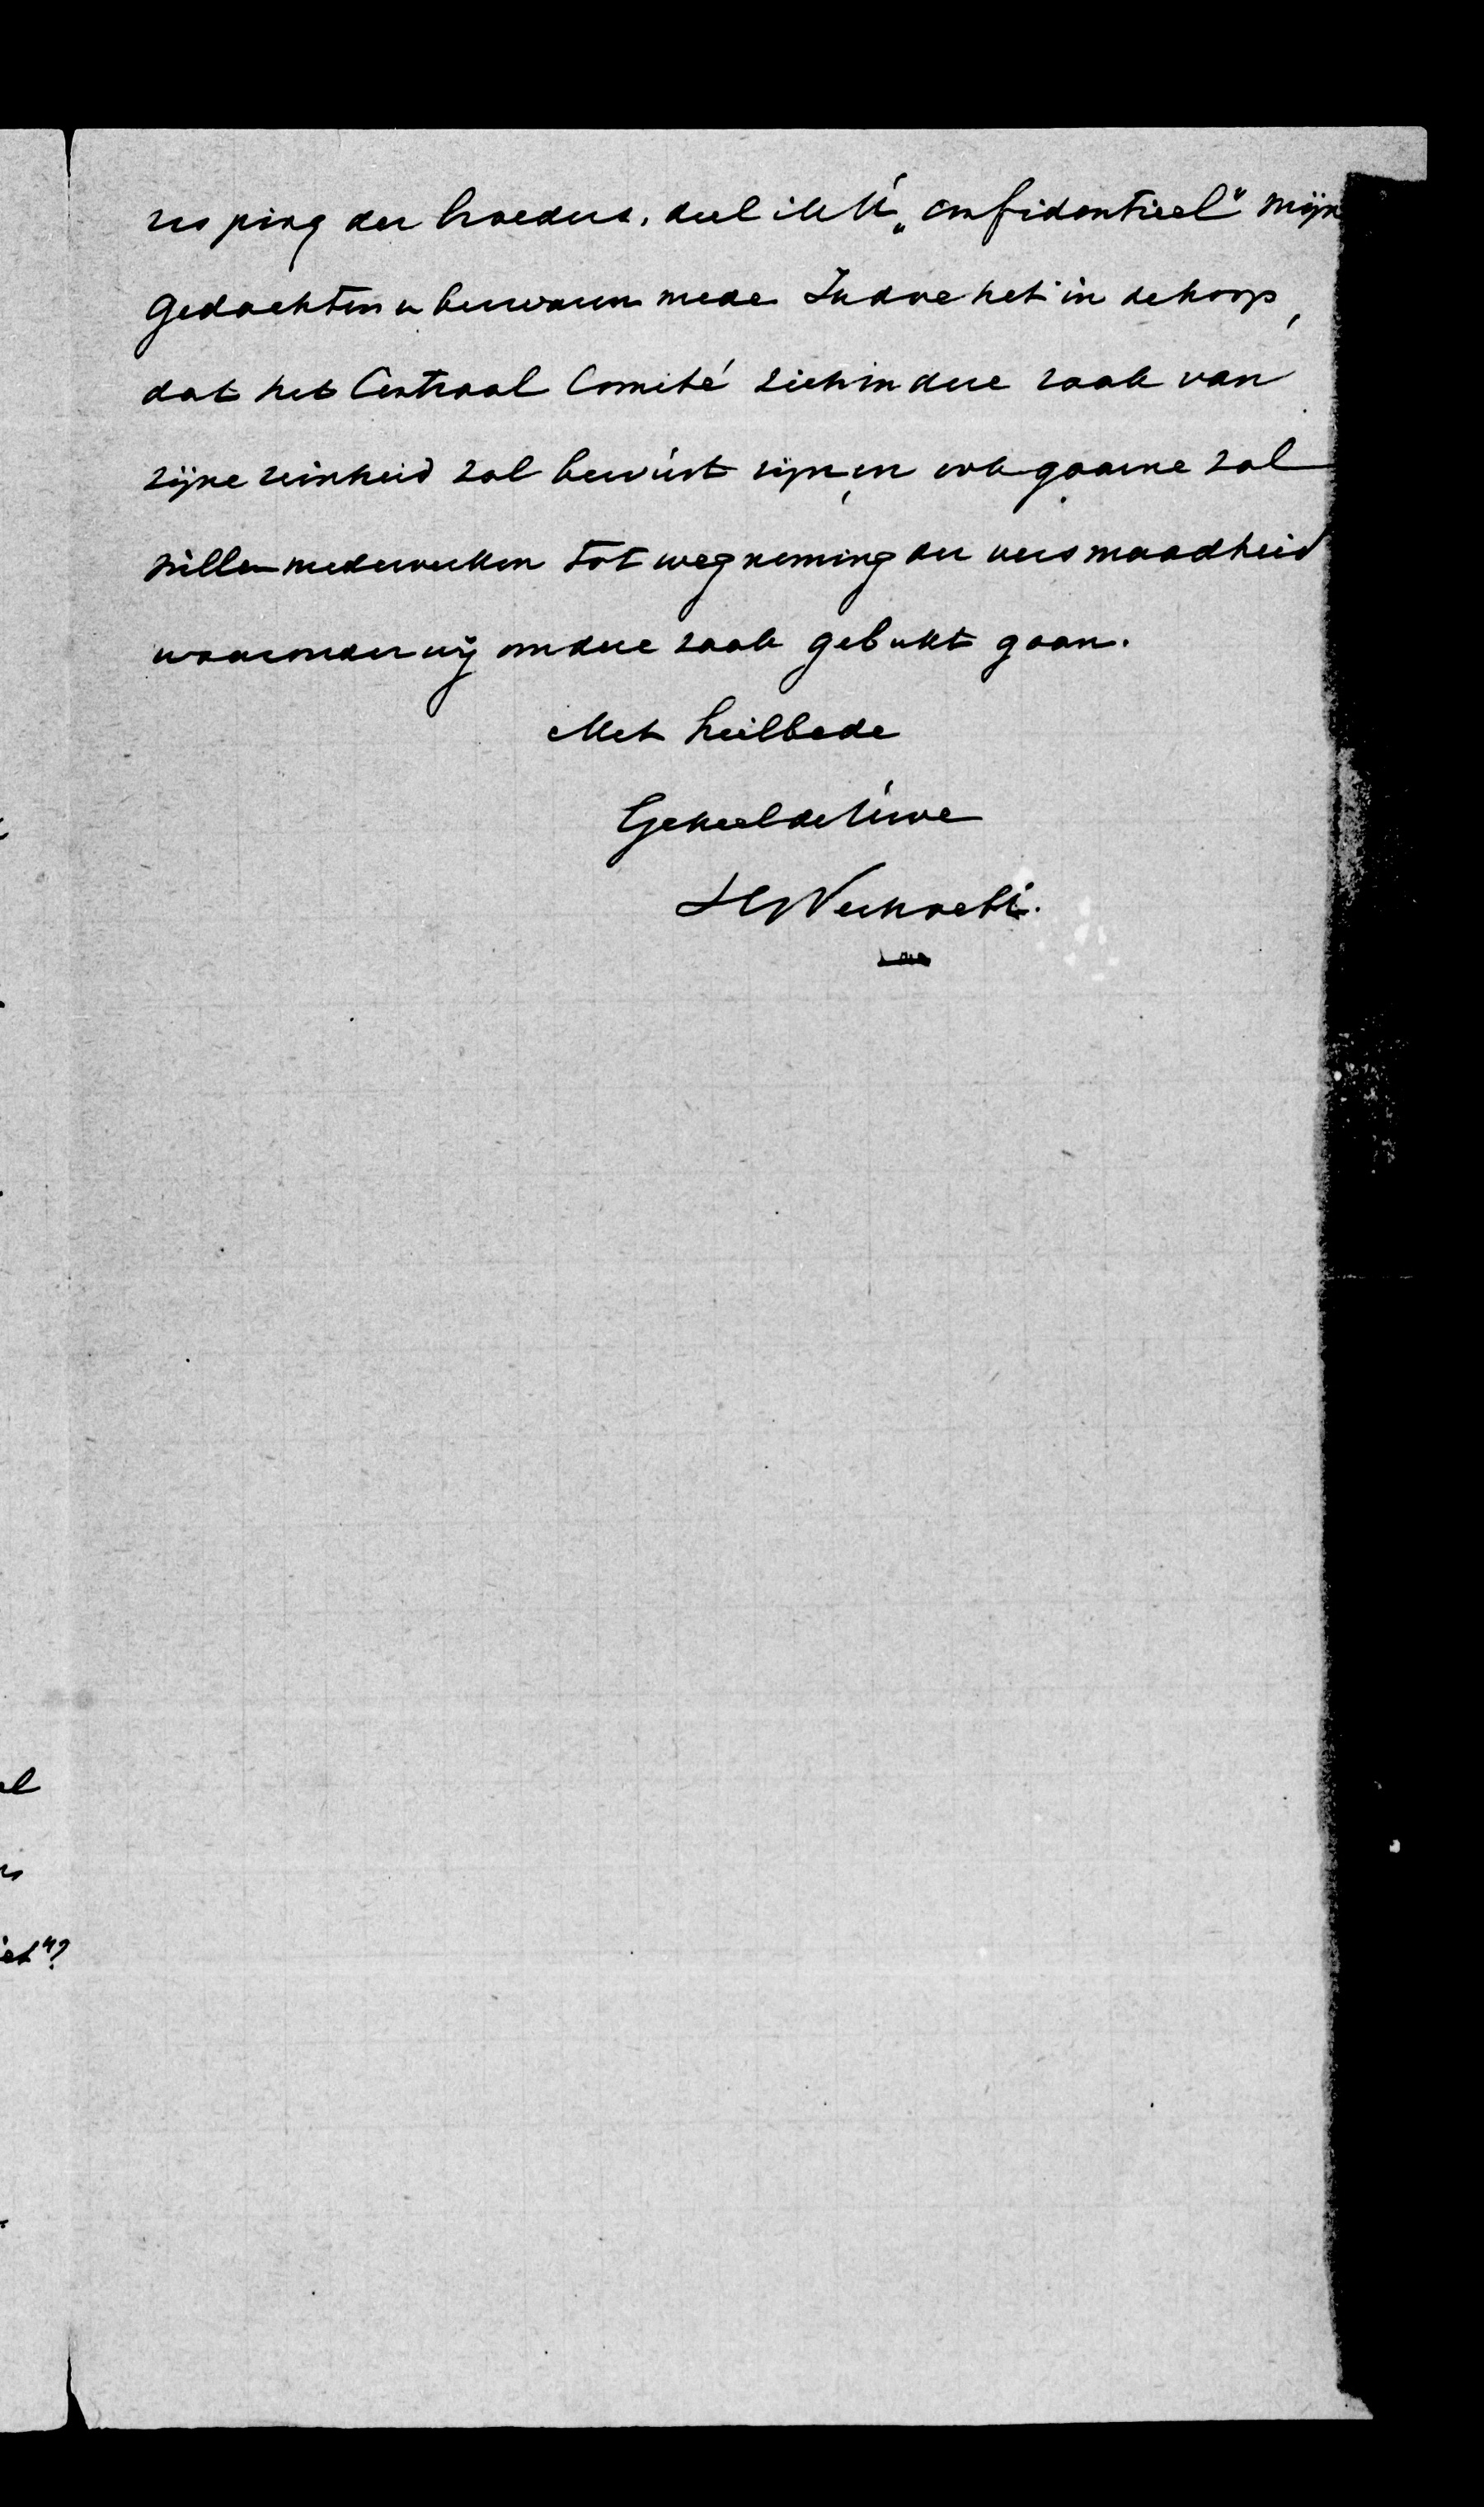 zesping der broeders, deel ik U „confidentieel" mijn
gedachten u bezwaren mede Ik doe het in de hoop,
dat het Centraal Comité zich in deze zaak van
zijne reinheid zal bewust zijn, en ook gaarne zal
willen medewerken tot wegneming der versmaadheid
waaronder wij om deze zaak gebukt gaan.
Met heilbede
Geheel de Uwe